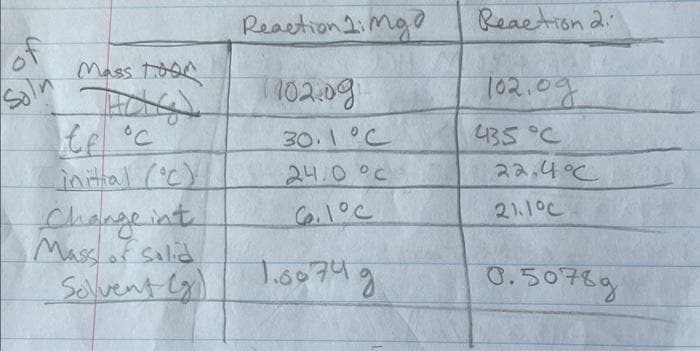 Reaction 1: MgO Reaction 2:
of Mass
soln HCl (g) 102.0g 102.0g
tf °C 30.1 °C 435 °C
initial (°C) 24.0 °C 22.4°C
Change in t 6.1°C 21.1°C
Mass of solid
Solvent (g) 1.0074 g 0.5078g